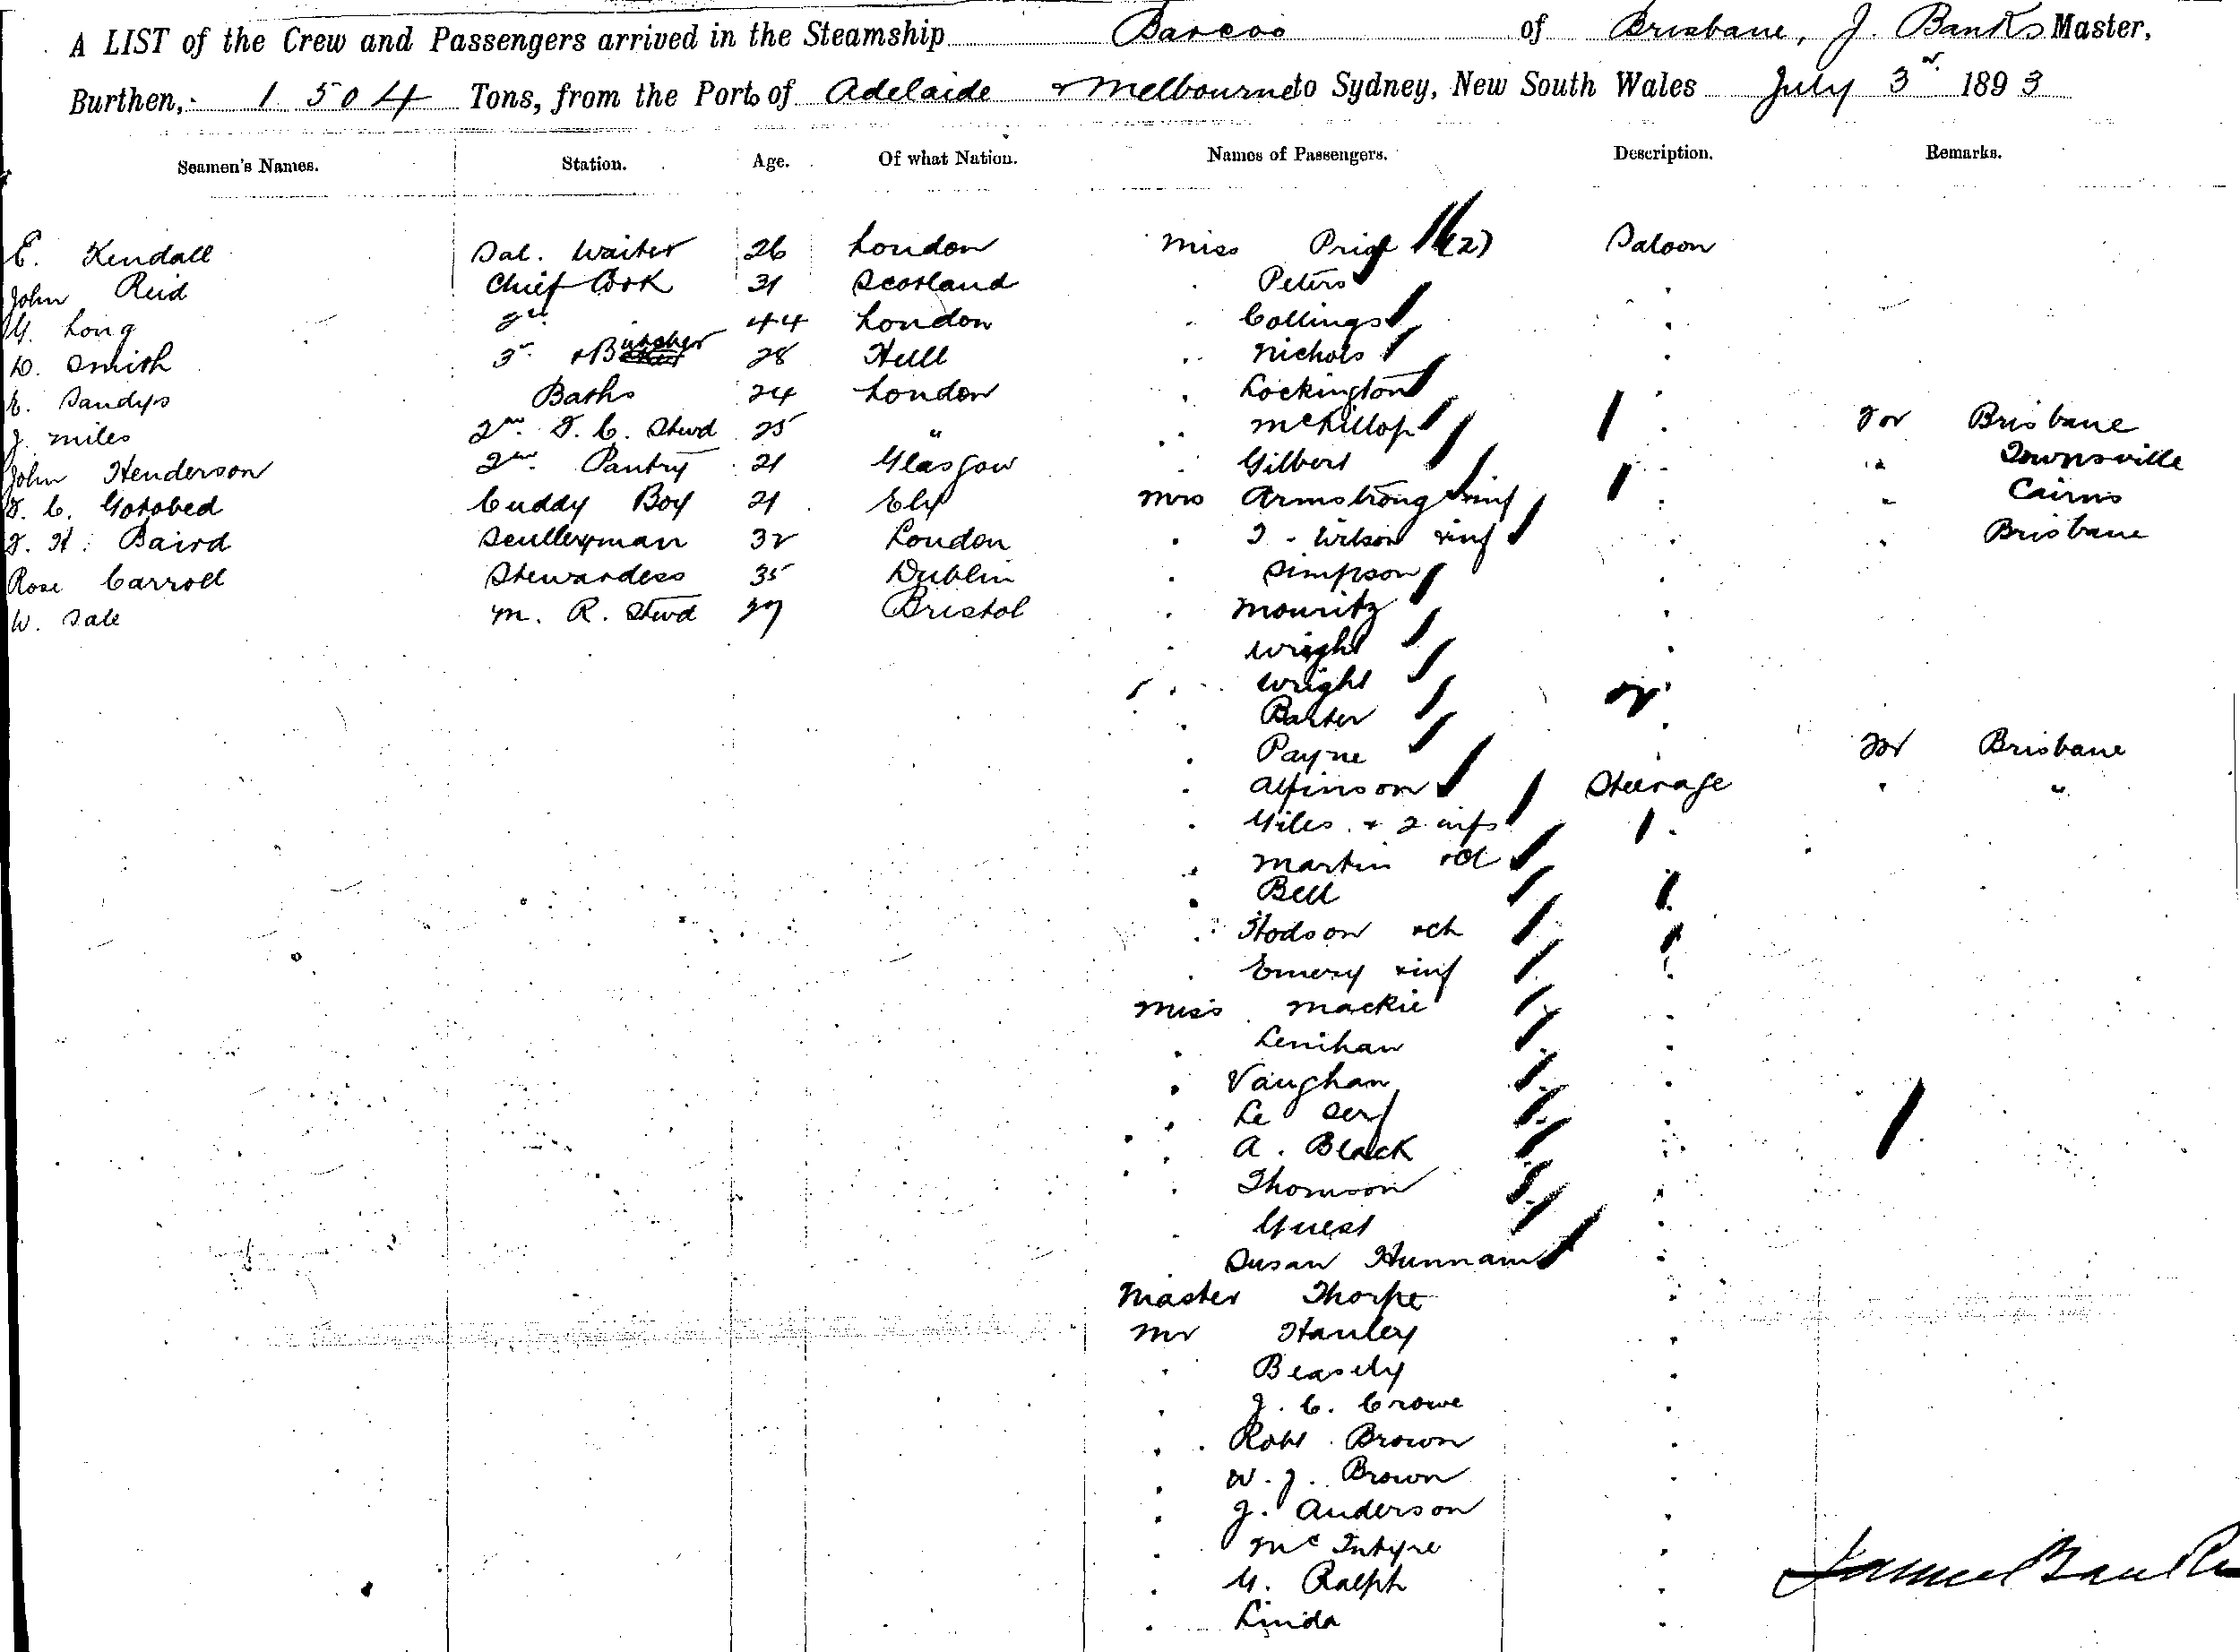 A LIST of the Crew and Passengers arrived in the Steamship Barcoo of Brisbane, J. Banks Master,
Burthen, 1504 Tons, from the Port of Adelaide & Melbourne to Sydney, New South Wales July 3rd 1893
Seamen's Names. Station. Age. Of what Nation. Names of Passengers. Description. Remarks.
E. Kendall Sal. Waiter 26 London Miss Price (2) Saloon
John Reid Chief Cook 31 Scotland . Peters .
G. Long 2nd 44 London . Collings .
D. Smith 3rd & Butcher 28 Hull . Nichols .
E. Sandys Baths 24 London . Lockington .
J. Miles 2nd S. C. Stwd 25 " . McKillop . For Brisbane
John Henderson 2nd Pantry 21 Glasgow . Gilbert . " Townsville
F. C. Gotobed Cuddy Boy 21 Ely Mrs Armstrong & inf . " Cairns
F. H. Baird Sculleryman 32 London . J. Wilson & inf . " Brisbane
Rose Carroll Stewardess 35 Dublin . Simpson .
W. Sale M. R. Stwd 27 Bristol . Mouritz .
. Wright .
. Wright .
. Barter .
. Payne . For Brisbane
. Alfinson Steerage " "
. Giles & 2 infs .
. Martin & ch .
. Bell .
. Hodson & ch .
. Emery & inf .
Miss Mackie .
. Lenihan .
. Vaughan .
. Le Serf .
. A. Black .
. Thomson .
. Guest .
. Susan Hunnam .
Master Thorpe .
Mr Hanley .
. Beasely .
. J. C. Crowe .
. Robt Brown .
. W. J. Brown .
. J. Anderson .
. McIntyre .
. G. Ralph . Banks
. Linda .